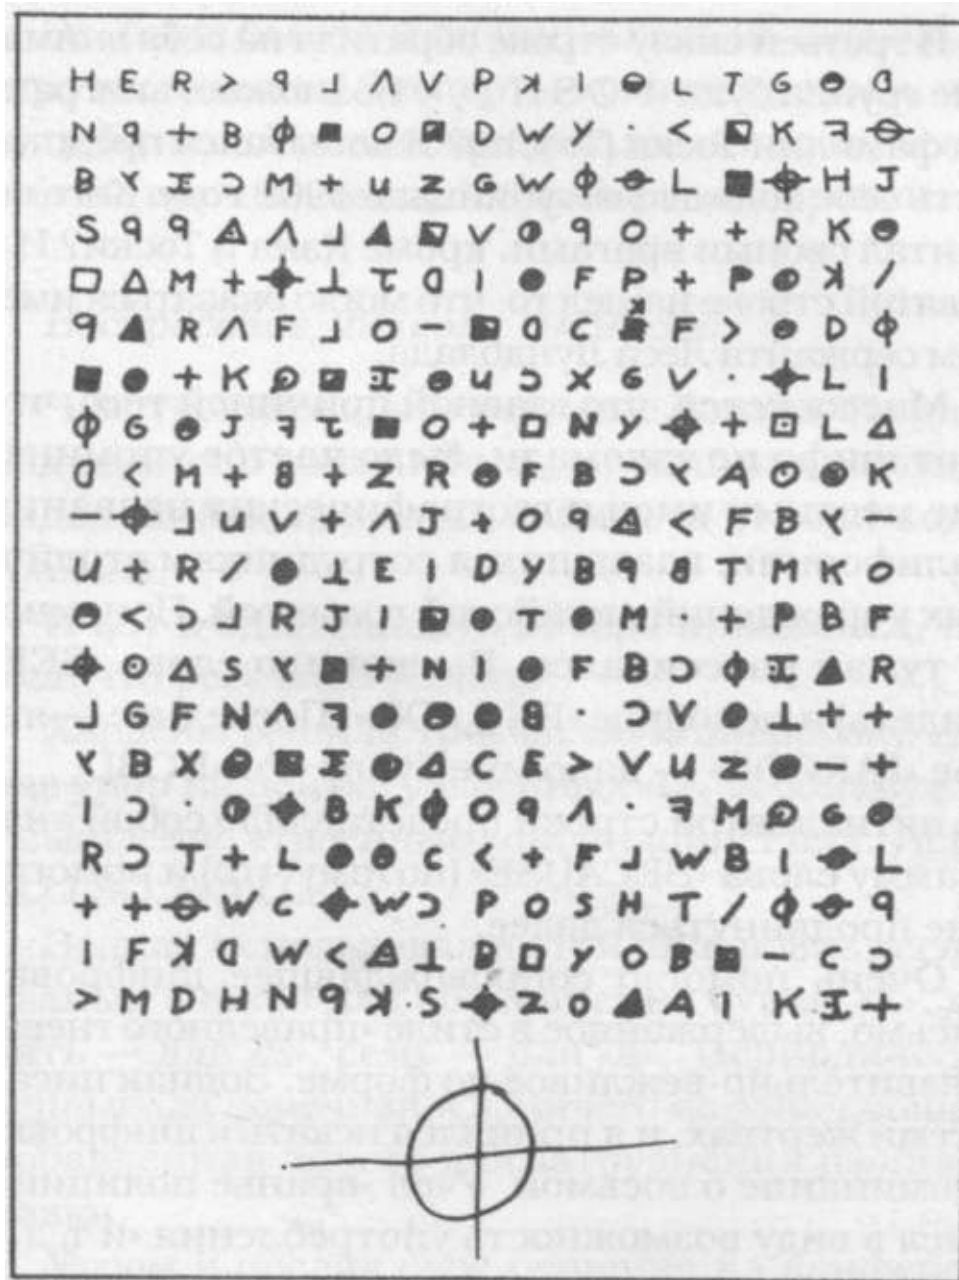 H E R > ꟼ ⅃ Λ V P ꓘ I ◒ L T G ◒ ᗡ
N ꟼ + B ϕ ■ O ◪ D W Y · < ◪ K ꟻ ⊖
B Y I Ɔ M + U Z G W ϕ ⊖ L ■ ⌖ H J
S ꟼ ꟼ △ Λ ⅃ ▲ ◪ V ◑ ꟼ O + + R K ◒
□ △ M + ⌖ ⊥ T ᗡ I ● F P + P ◒ ꓘ /
ꟼ ▲ R Λ F ⅃ O − ◪ ᗡ C ■ F > ◒ D ϕ
■ ● + K ◒ ◪ I ◒ U Ɔ X G V · ⌖ L I
ϕ G ◒ J ꟻ T ■ O + □ N Y ⌖ + ⊡ L △
ᗡ < M + 8 + Z R ◒ F B Ɔ Y A ⊙ ◒ K
− ⌖ ⅃ U V + Λ J + O ꟼ △ < F B Y −
U + R / ● ⊥ E I D Y B ꟼ 8 T M K O
◒ < Ɔ ⅃ R J I ◪ ● T ◒ M · + P B F
⌖ ⊙ △ S Y ■ + N I ● F B Ɔ ϕ I ▲ R
⅃ G F N Λ ꟻ ● ◒ ◒ 8 · Ɔ V ◒ ⊥ + +
Y B X ◒ ◪ I ● △ C E > V U Z ● − +
I Ɔ · ◑ ⌖ B K ϕ O ꟼ Λ · ꟻ M ◒ G ◒
R Ɔ T + L ◒ ◒ C < + F ⅃ W B I ⊖ L
+ + ⊖ W C ⌖ W Ɔ P O S H T / ϕ ⊖ ꟼ
I F ꓘ ᗡ W < △ ⊥ B □ Y O B ■ − C Ɔ
> M D H N ꟼ ꓘ S ⌖ Z O ▲ A I K I +